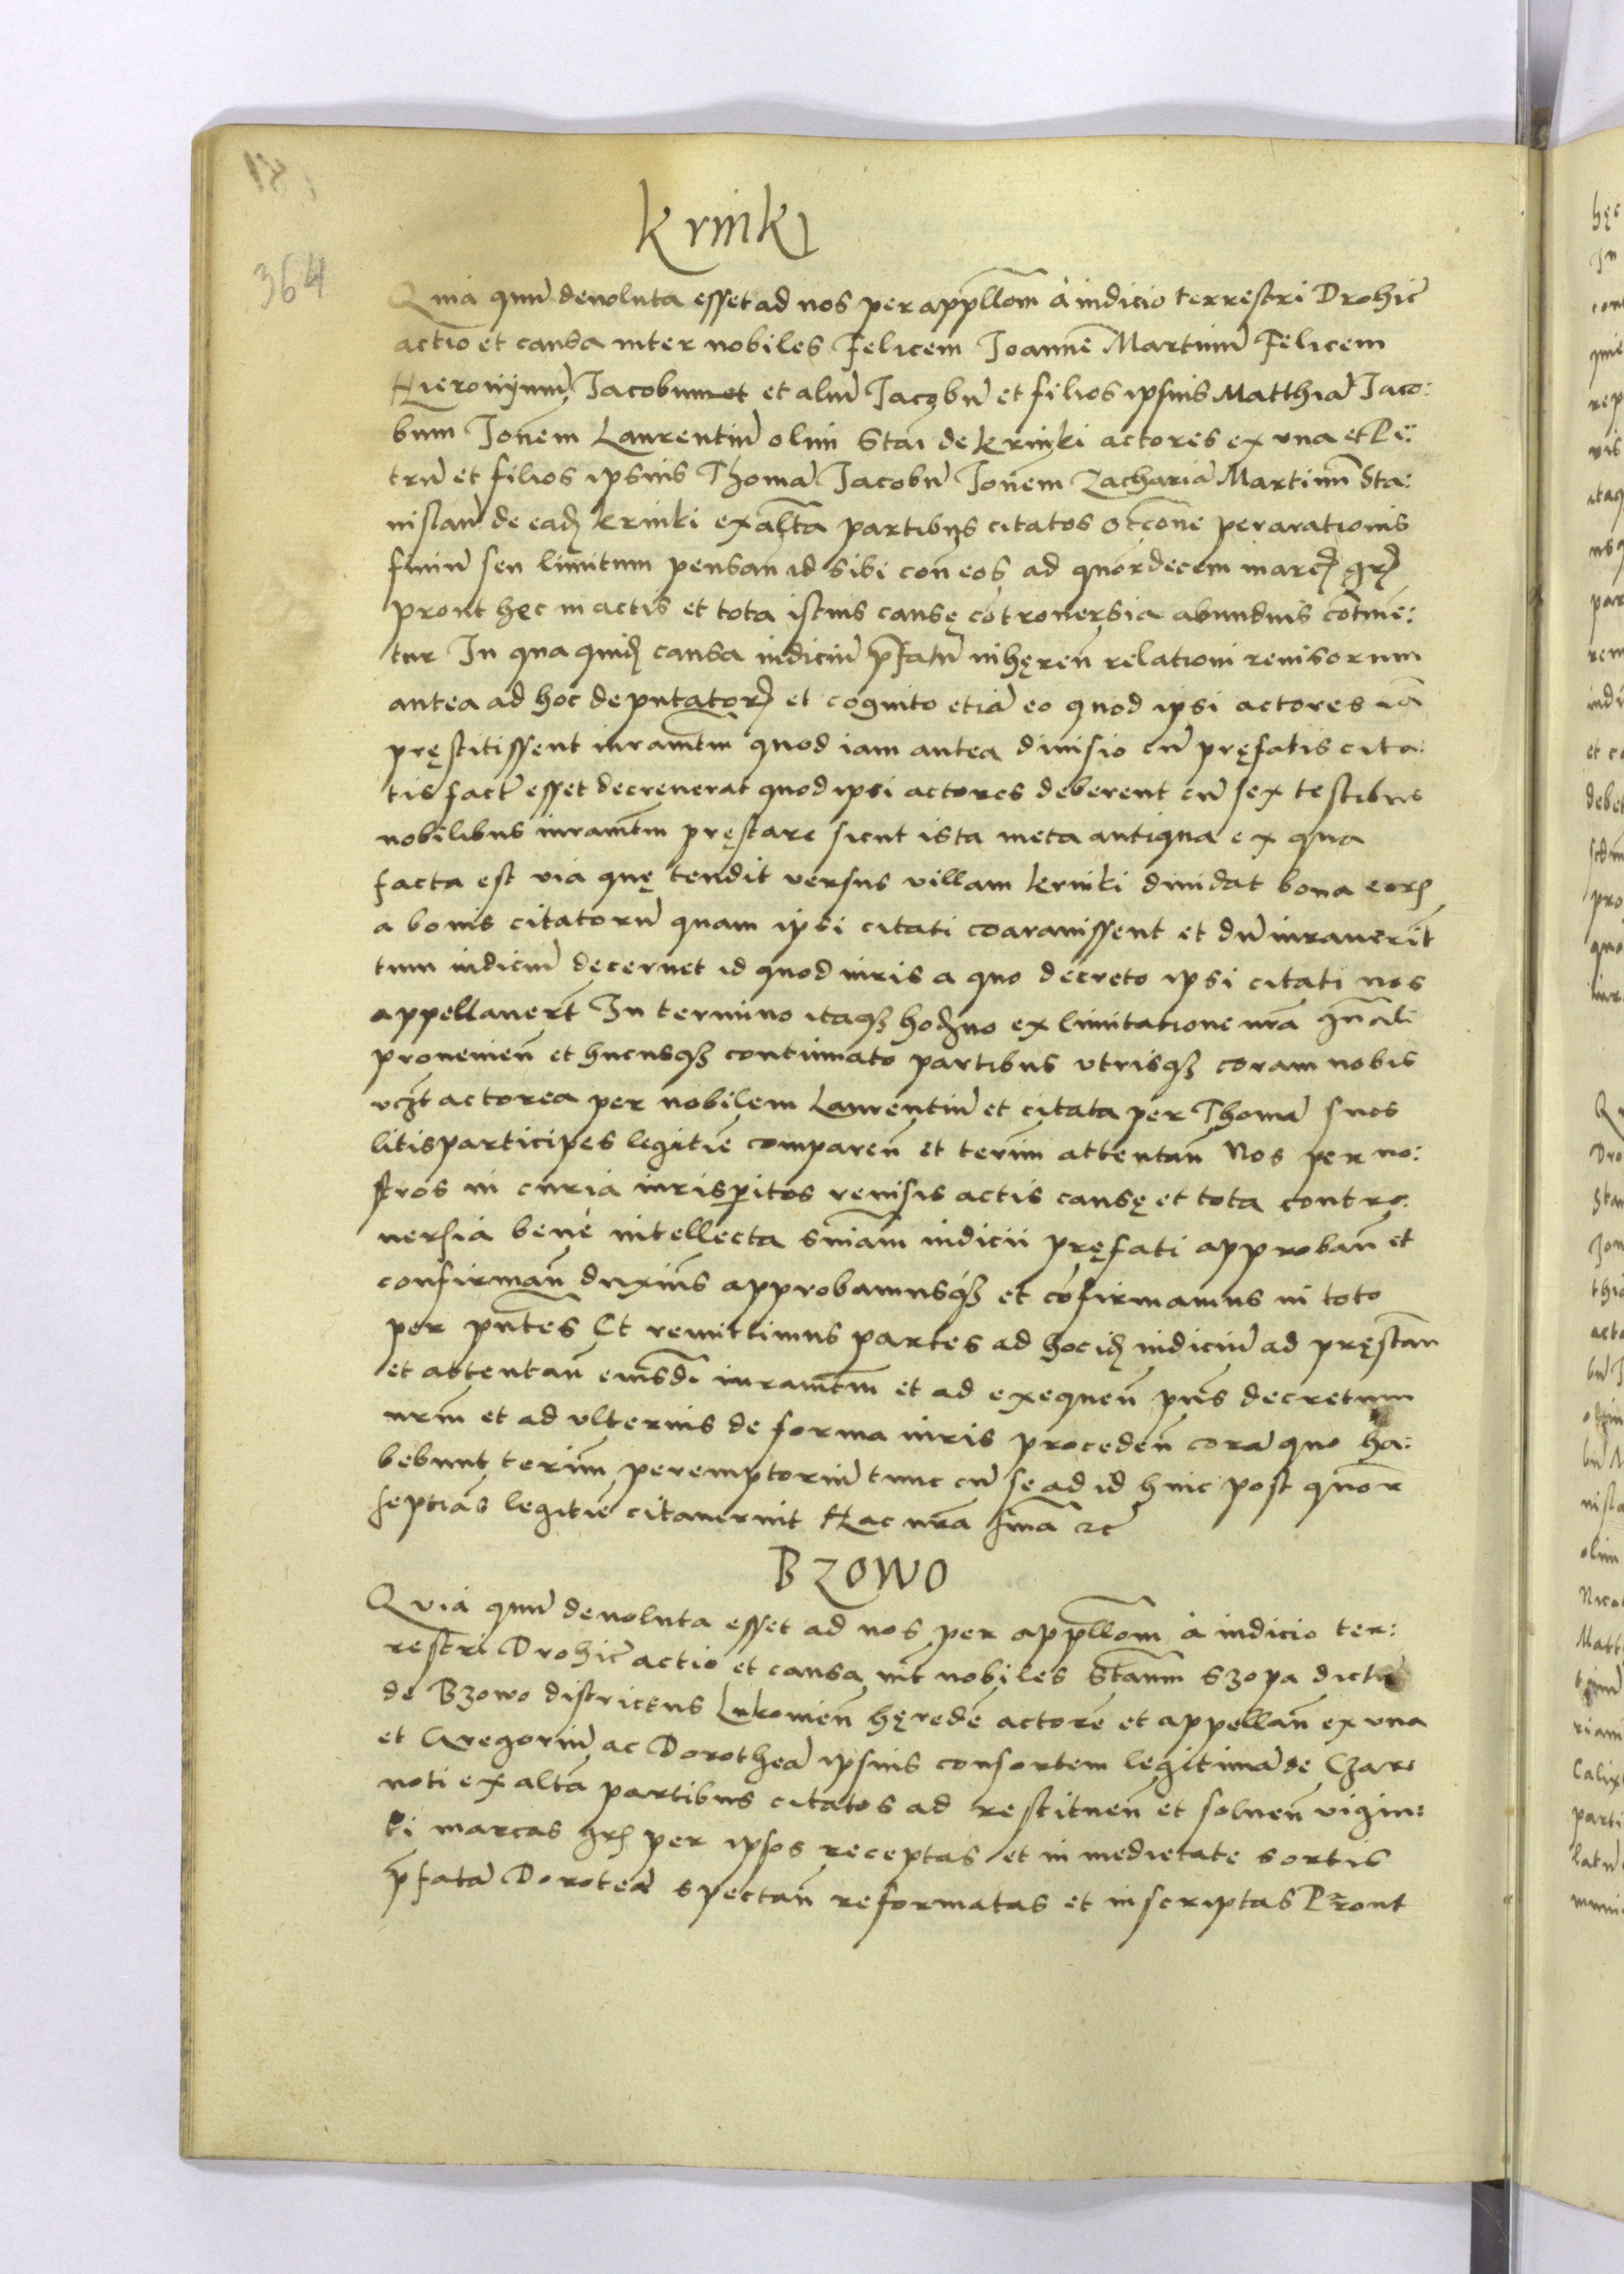 364
Krinki
Quia quu̅ devoluta esset ad nos per app̅llom̅ à iudicio terrestri Drohic̅
actio et causa inter nobiles Felicem Joanne̅ Martinu̅ Felicem
Hieronijmu̅ Jacobum et aliu̅ Jacobu̅ et filios ipsius Matthia̅ Jaco:
bum Jone̅m Laurentiu̅ olim Stai de Krinki actores ex una et Pe:
tru̅ et filios ipsius Thoma̅ Jacobu̅ Jone̅m Zacharia̅ Martinu̅ Sta:
nislau̅ de ead̅ Krinki ex alt̅a partibus citatos peraratiouis
finiu̅ seu limitum pensan̅ id sibi con̅ eos ad quor̅decem marc̅ gr̅
prout hęc in actis et tota istius causę co̅troversia abundius co̅tine:
tur In qua quid̅ causa iudiciu̅ p̅fatu̅ inhęren̅ relationi revisorum
antea ad hoc deputator̅ et cognito etia̅ eo quod ipsi actores ia̅
pręstitissent iuramt̅m quod iam antea divisio cu̅ pręfatis cita:
tis fact̅ esset decreverat quod ipsi actores deberent cu̅ sex testibus
nobilibus iuramt̅m pręstare sicut ista meta antiqua ex qua
facta est via quę tendit versus villam Krinki dividat bona eor̅
a bonis citatoru̅ quam ipsi citati coaravissent et du̅ iuraverit̅
tum iudiciu̅ decernet id quod iuris a quo decreto ipsi citati nos
appellaver̅t In termino itaqꝫ hod̅no ex limitatione nr̅a gn̅ali
provenien̅ et hucusqꝫ continuato partibus utrisqꝫ coram nobis
vcꝫt actorea per nobilem Laurentiu̅ et citata per Thoma̅ suos
litisparticipes legitie̅ comparen̅ et terim̅ attentan̅ Nos per no:
stros in curia iurisp̅itos revisis actis causę et tota contro:
versia benè intellecta sniam̅ iudicii pręfati approban̅ et
confirman̅ duxim̅s approbamusqꝫ et co̅firmamus in toto
per pn̅tes Et remittimus partes ad hoc id̅ iudiciu̅ ad pręstan̅
et attentan̅ eiusd̅i iuramt̅m et ad exequen̅ pn̅s decretum
nr̅m et ad ulterius de forma iuris proceden̅ cora̅ quo ha:
bebunt terim̅ peremptoriu̅ tunc cu̅ se ad id hinc post quor̅
septias̅ legitie̅ citaverint Hac nr̅a sn̅ia ꝛc̅
Bzowo
Quia quu̅ devoluta esset ad nos per app̅llom̅ à iudicio ter:
restri Drohic̅ actio et causa int̅ nobiles Stan̅m Szopa dictu̅
de Bzowo districtus Lukovien̅ hęrede̅ actore̅ et appellan̅ ex una
et Gregoriu̅ ac Dorothea̅ ipsius consortem legitima̅ de Czar:
noti ex alt̅a partibus citatos ad restituen̅ et solven̅ vigin:
ti marcas gr̅ per ipsos receptas et in medietate sortis
p̅fata̅ Dorotea̅ spectan̅ reformatas et inscriptas Prout